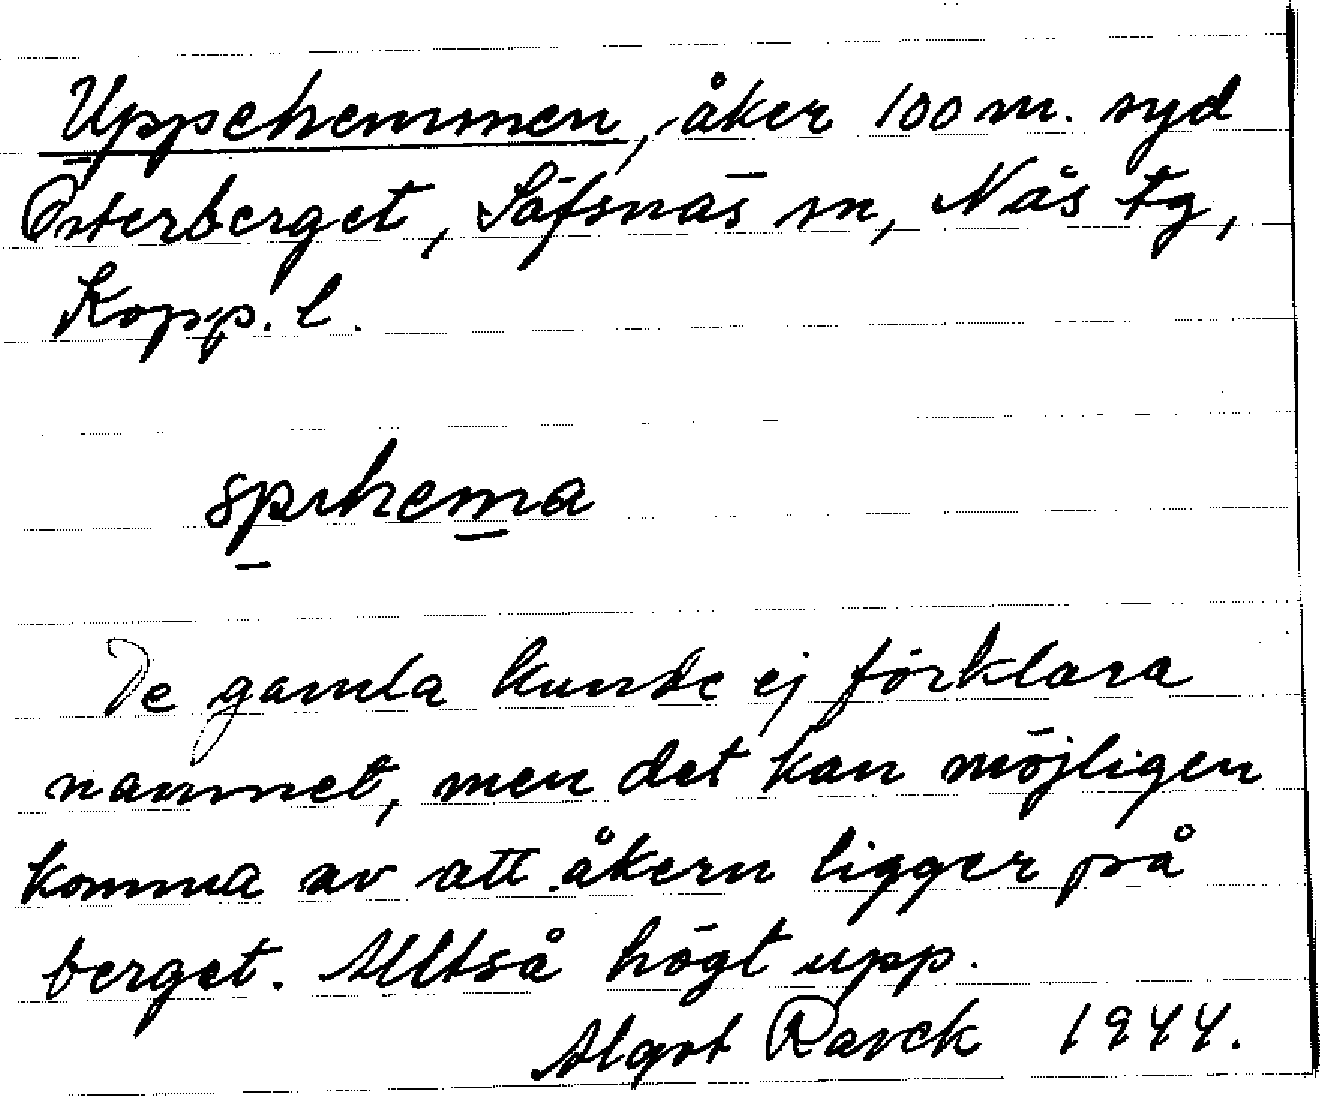 Uppehemmen, åker 100 m. syd
Österberget, Säfsnäs sn, Nås tg,
Kopp. l.
De gamla kunde ej förklara
namnet, men det kan möjligen
komma av att åkern ligger på
berget. Alltså högt upp.
Algot 1944.